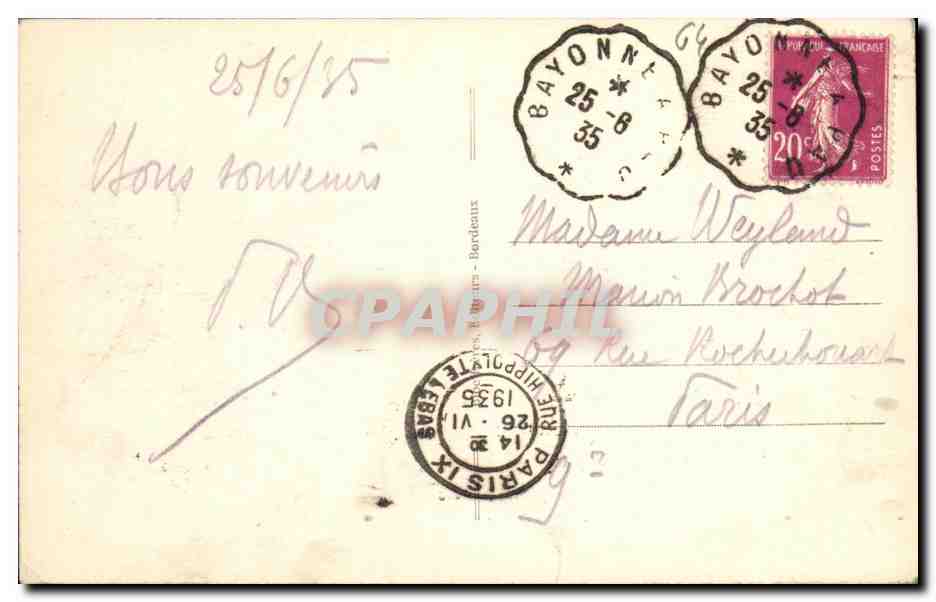 25/6/35
Bons souvenirs
64
BAYONNE A
25-6
35
BAYONNE A
25-6
35
RÉPUBLIQUE FRANÇAISE
20c
POSTES
Madame Weyland
Maison Brochot
69 Rue Rochechouart
Paris
9
Editeurs - Bordeaux
CPAPHIL
PARIS IX
RUE HIPPOLYTE LEBAS
14 30
26 · VI
1935